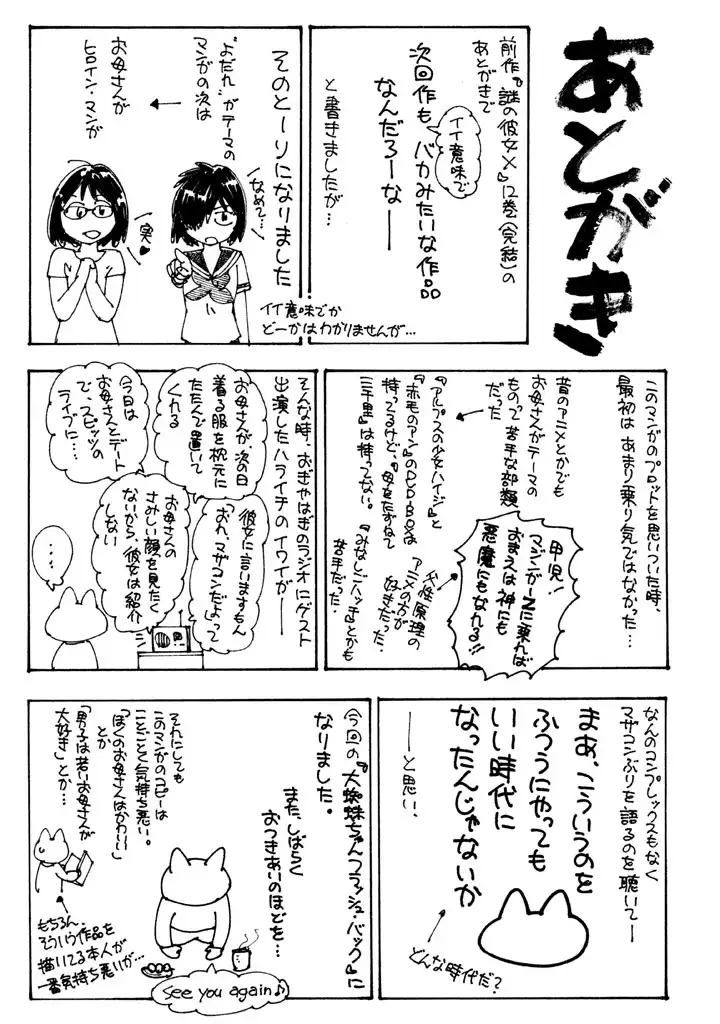 あとがき
前作『謎の彼女X』12巻(完結)の
あとがきで
次回作も
イイ意味で
バカみたいな作品
なんだろーなー
と書きましたが…
"よだれ"がテーマの
マンガの次は
お母さんが
ヒロイン・マンガ
そのとーりになりました
なめて…
実♥
イイ意味でか
どーかはわかりませんが…
このマンガのプロットを思いついた時、
最初は あまり乗り気ではなかった…
昔のアニメとかでも
お母さんがテーマの
もので 苦手な部類
だった
『アルプスの少女ハイジ』と
『赤毛のアン』のDVD-BOXは
持ってるけど、『母をたずねて
三千里』は持ってない。
『みなしごハッチ』とかも
苦手だった。
甲児!
マジンガーZに乗れば
おまえは神にも
悪魔にもなれる!!
父性原理の
アニメの方が
好きだった。
そんな時、おぎやはぎのラジオにゲスト
出演したハライチのイワイが――
お母さんが、次の日
着る服を枕元に
たたんで置いて
くれる
今日は
お母さんとデート
で、スピッツの
ライブに…
彼女に言いますもん
「おれ、マザコンだよ」って
お母さんの
さみしい顔を見たく
ないから、彼女は紹介
しない
…
なんのコンプレックスもなく
マザコンぶりを語るのを聴いて―
まあ、こういうのを
ふつうにやっても
いい時代に
なったんじゃないか
――と思い、
どんな時代だ?
今回の『大蜘蛛ちゃんフラッシュ・バック』に
なりました。
また、しばらく
おつきあいのほどを…
それにしても
このマンガのコピーは
ことごとく気持ち悪い。
「ぼくのお母さんはかわいい」
とか
「男子は若いお母さんが
大好き」とか…
もちろん、
そういう作品を
描いてる本人が
一番気持ち悪いが…
see you again♪